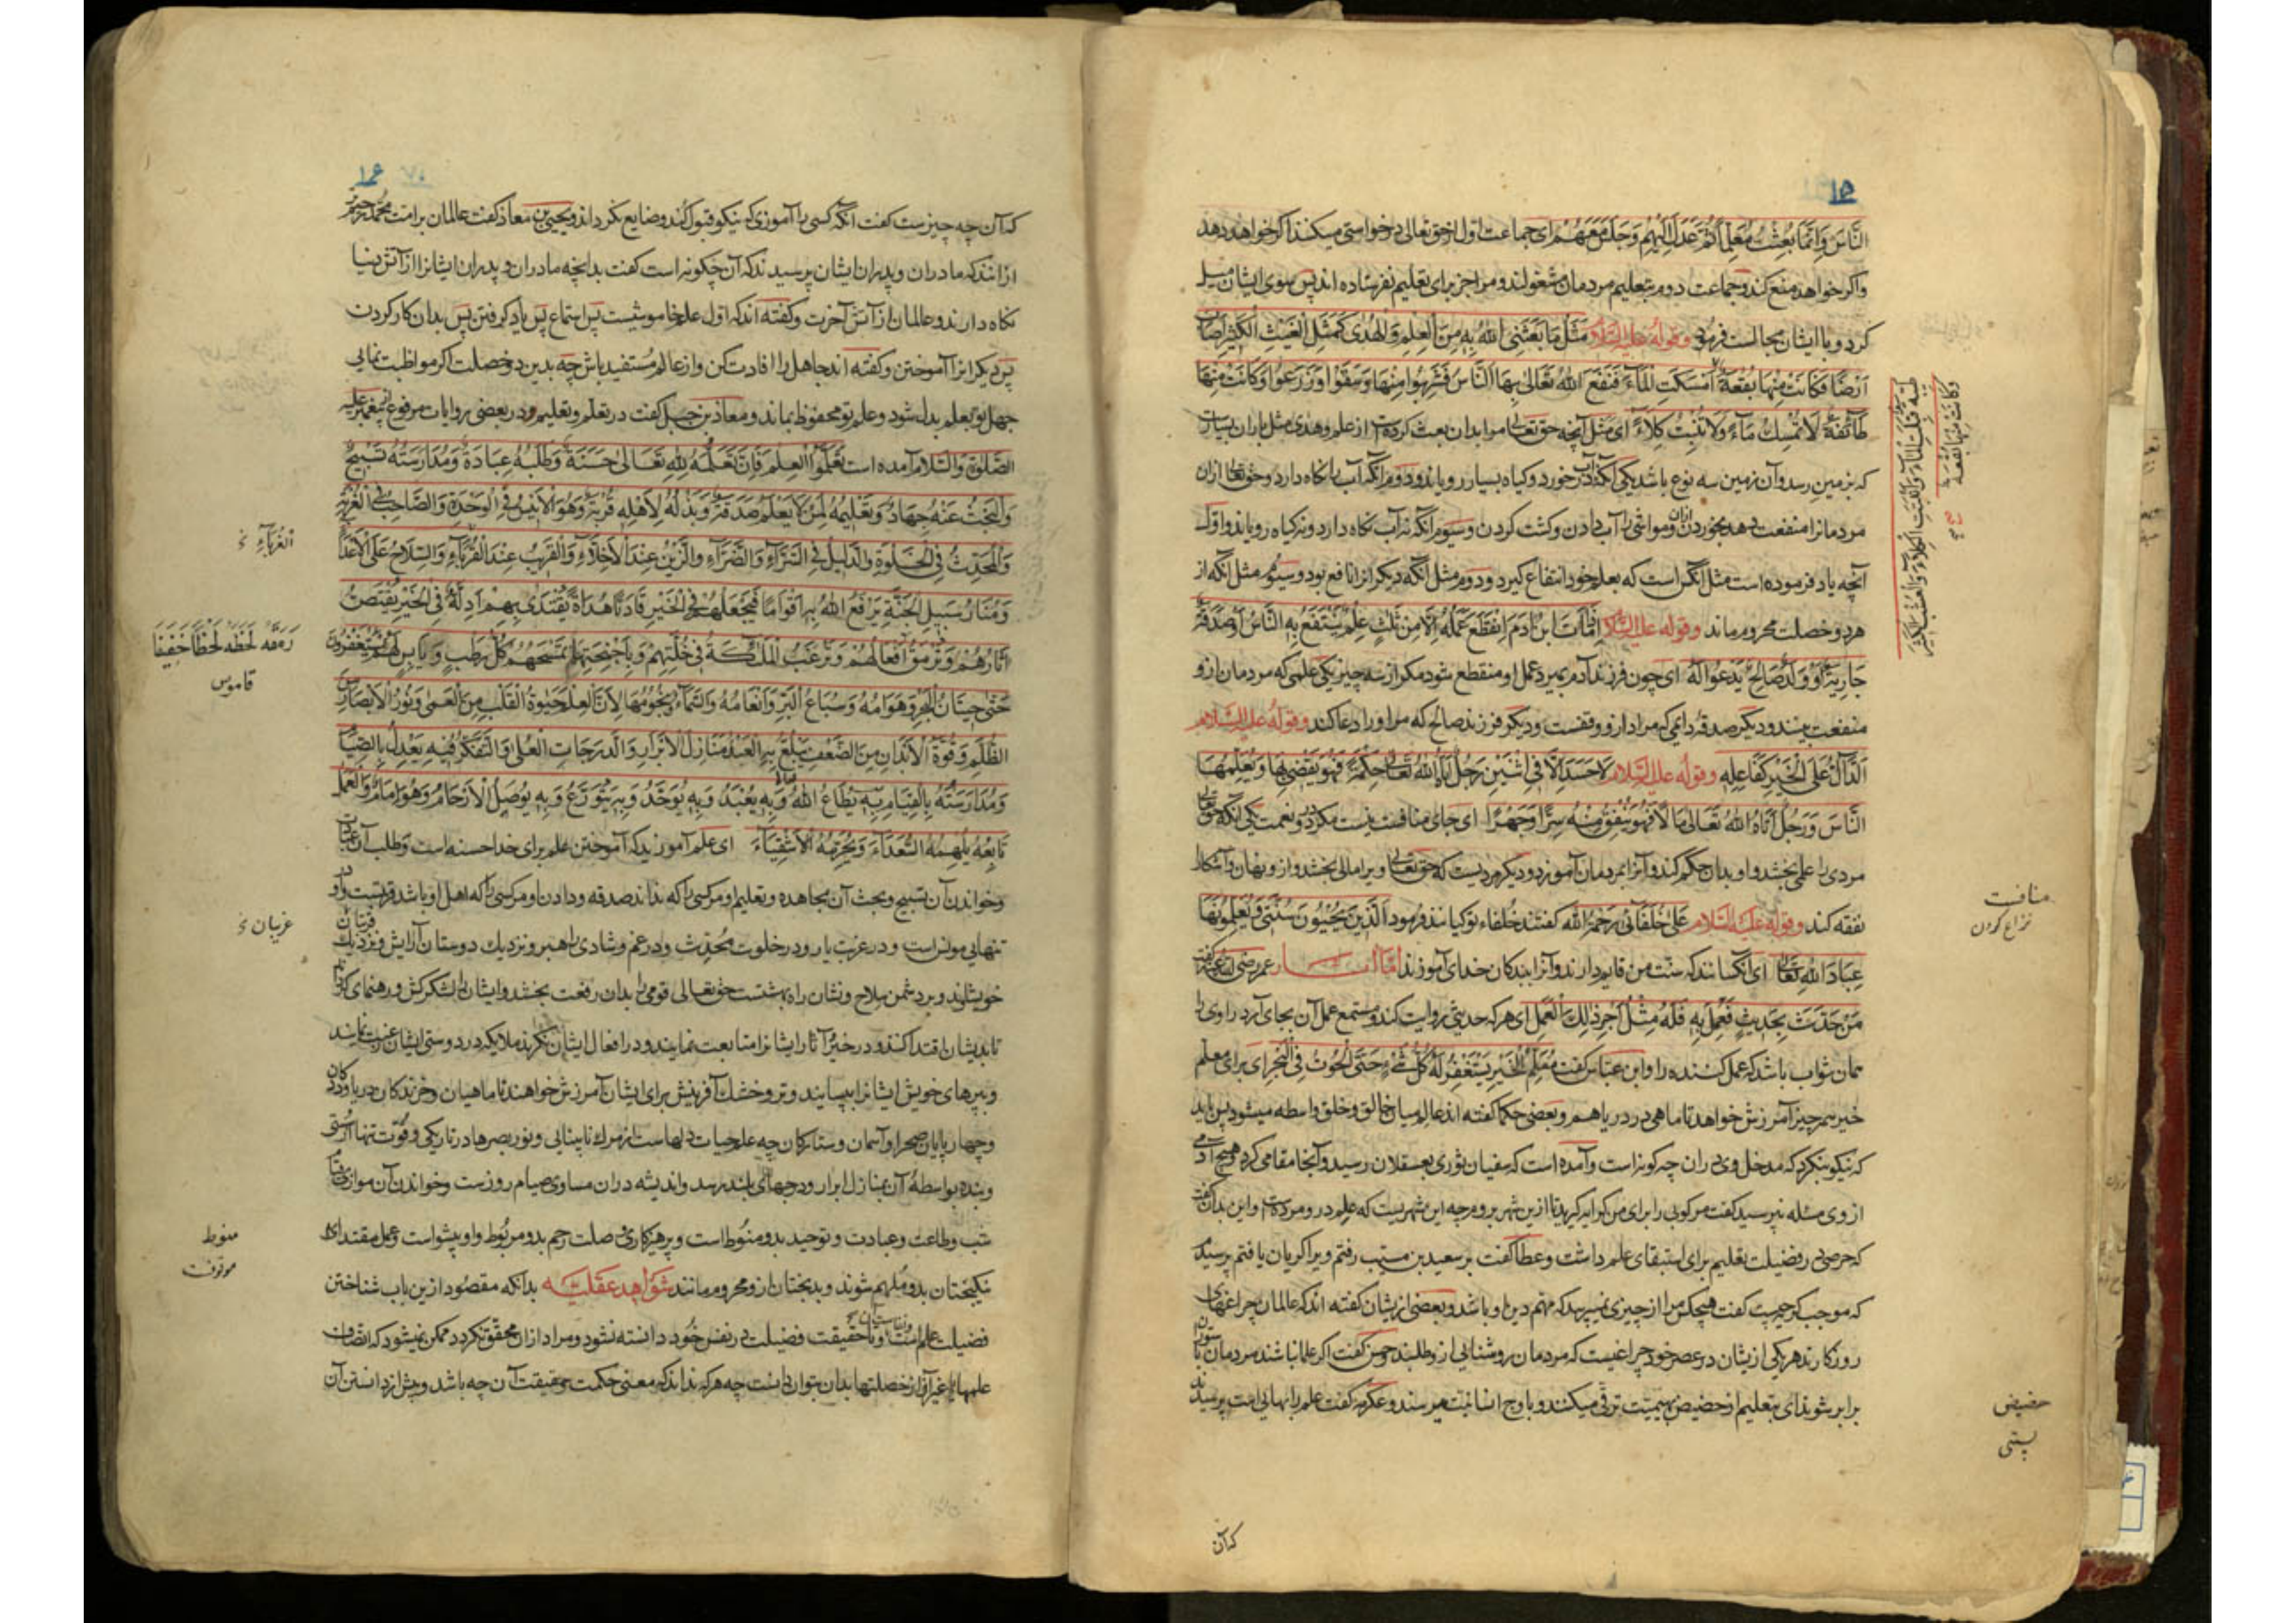 النَّاسَ وَاِنَّمَا بُعِثْتُ مُعَلِّمًا ثُمَّ عَدَلَ اِلَيْهِمْ وَجَلَسَ مَعَهُمْ ای جماعت اول از حق تعالی درخواستی میکنند اکر خواهد دهد
واکر خواهد منع کند وجماعت دوم بتعلیم مردمان مشغولند ومرا جز برای تعلیم نفرستاده اند پس سوی ایشان میل
کرد وبا ایشان مجالست فرمود وقوله علیه السّلام مَثَلُ مَا بَعَثَنِی اللهُ بِهِ مِنَ الْعِلْمِ وَالْهُدٰی کَمَثَلِ الْغَیْثِ الْکَثِیْرِ اَصَابَ
اَرْضًا فَکَانَتْ مِنْهَا بُقْعَةٌ اَمْسَکَتِ الْمَآءَ فَنَفَعَ اللهُ تَعَالٰی بِهَا النَّاسَ فَشَرِبُوا مِنْهَا وَسَقَوْا وَزَرَعُوا وَکَانَتْ مِنْهَا
طَآئِفَةٌ لَا تُمْسِكُ مَآءً وَلَا تُنْبِتُ کَلَاءً ای مثل آنچه حق تعالی مرا بدان بعث کرده است از علم وهدی مثل باران بسیار است
که بزمین رسد وآن زمین سه نوع باشد یکی آنکه آب درخورد وکیاه بسیار رویاند ودوم آنکه آب را نکاه دارد وحق تعالی ازان
مردمانرا منفعت دهد بخوردن ازان ومواشی را آب دادن وکشت کردن وسیوم آنکه نه آب نکاه دارد ونه کیاه رویاند واول
آنچه یاد فرموده است مثل آنکس است که بعلم خود انتفاع کیرد ودوم مثل آنکه دیکرانرا نافع بود وسیوم مثل آنکه از
هر دو خصلت محروم ماند وقوله علیه السّلام اِذَا مَاتَ ابْنُ اٰدَمَ اِنْقَطَعَ عَمَلُهُ اِلَّا مِنْ ثَلٰثٍ عِلْمٌ یُنْتَفَعُ بِهِ النَّاسُ اَوْ صَدَقَةٌ
جَارِیَةٌ اَوْ وَلَدٌ صَالِحٌ یَدْعُوا لَهُ ای چون فرزند آدم بمیرد عمل او منقطع شود مکر از سه چیز یکی علمی که مردمان ازو
منفعت بینند ودیکر صدقه دائمی که مراد ازو وقفست ودیکر فرزند صالح که مر او را دعا کند وقوله علیه السّلام
اَلدَّالُّ عَلَی الْخَیْرِ کَفَاعِلِهِ وقوله علیه السّلام لَا حَسَدَ اِلَّا فِی اثْنَیْنِ رَجُلٌ اٰتَاهُ اللهُ تَعَالٰی حِکْمَةً فَهُوَ یَقْضِی بِهَا وَیُعَلِّمُهَا
النَّاسَ وَرَجُلٌ اٰتَاهُ اللهُ تَعَالٰی مَالًا فَهُوَ یُنْفِقُ مِنْهُ سِرًّا وَجَهْرًا ای جای منافست نیست مکر در دو نعمت یکی آنکه حق تعالی
مردی را علمی بخشد واو بدان حکم کند وآنرا بمردمان آموزد ودیکر مردیست که حق تعالی ویرا مالی بخشد وازو پنهان وآشکارا
نفقه کند وقوله علیه السلام عَلٰی خُلَفَائِی رَحْمَةُ اللهِ کفتند خلفاء تو کیانند فرمود اَلَّذِیْنَ یُحْیُوْنَ سُنَّتِی وَیُعَلِّمُوْنَهَا
عِبَادَ اللهِ تَعَالٰی ای آنکسانند که سنّت من قایم دارند وآنرا ببندکان خدای آموزند امّا آثار عمر رضی الله عنه کفت
مَنْ حَدَّثَ بِحَدِیْثٍ فَعُمِلَ بِهِ فَلَهُ مِثْلُ اَجْرِ ذٰلِكَ الْعَمَلِ ای هرکه حدیثی روایت کند ومستمع عمل آن بجای آرد راوی را
همان ثواب باشد که عمل کننده را وابن عباس کفت مُعَلِّمُ الْخَیْرِ یَسْتَغْفِرُ لَهُ کُلُّ شَیْءٍ حَتَّی الْحُوْتُ فِی الْبَحْرِ ای برای معلم
خیر همه چیز آمرزش خواهد تا ماهی در دریا هم وبعضی حکما کفته اند عالم میان خالق وخلق واسطه میشود پس باید
که نیکو بنکرد که مدخل وی دران چه کونه است وآمده است که سفیان ثوری بعسقلان رسید وآنجا مقامی کرد هیچ آدمی
از وی مسئله نپرسید کفت مرکوبی را برای من کرایه کیرید تا ازین شهر بروم چه این شهریست که علم درو مرده است واین بدان کفت
که حرص در فضیلت تعلیم برای استبقای علم داشت وعطا کفت بر سعید بن مسیّب رفتم ویرا کریان یافتم پرسیدم
که موجب کریه چیست کفت هیچکس مرا از چیزی نمیپرسد که مهتم دین او باشد وبعضی ازیشان کفته اند که عالمان چراغهای
روزکارند هر یکی ازیشان در عصر خود چراغیست که مردمان روشنایی ازو طلبند وحسن کفت اکر علما نباشند مردمان با ستوران
برابر شوند ای بتعلیم از حضیض بهیمیّت ترقی میکنند وباوج انسانیّت میرسند وعکرمه کفت علم را بهایی است پرسیدند
وَکَانَتْ مِنْهَا بُقْعَةٌ
طَیِّبَةٌ قَبِلَتِ الْمَآءَ وَاَنْبَتَتِ الْکَلَاءَ وَالْعُشْبَ الْکَثِیْرَ
منافست
نزاع کردن
حضیض
پستی
که آن
۱۵
۱۶
که آن چه چیز ست کفت آنکه کسی را آموزی که نیکو قبول کند وضایع نکرداند ویحیی بن معاذ کفت عالمان بر امت محمد رحیم‌تر
ازانند که مادران وپدران ایشان پرسیدند که آن چکونه است کفت بدانچه مادران وپدران ایشانرا از آتش دنیا
نکاه دارند وعالمان از آتش آخرت وکفته اند که اول علم خاموشیست پس استماع پس یاد کرفتن پس بدان کار کردن
پس دیکرانرا آموختن وکفته اند جاهل را افادت کن واز عالم مستفید باش چه بدین دو خصلت اکر مواظبت نمایی
جهل تو بعلم بدل شود وعلم تو محفوظ بماند ومعاذ بن جبل کفت در تعلم وتعلیم ودر بعضی روایات مرفوع از پیغمبر علیه
الصّلوة والسّلام آمده است تَعَلَّمُوا الْعِلْمَ فَاِنَّ تَعَلُّمَهُ لِلّٰهِ تَعَالٰی حَسَنَةٌ وَطَلَبَهُ عِبَادَةٌ وَمُدَارَسَتَهُ تَسْبِیْحٌ
وَالْبَحْثَ عَنْهُ جِهَادٌ وَتَعْلِیْمَهُ لِمَنْ لَا یَعْلَمُ صَدَقَةٌ وَبَذْلَهُ لِاَهْلِهِ قُرْبَةٌ وَهُوَ الْاَنِیْسُ فِی الْوَحْدَةِ وَالصَّاحِبُ فِی الْغُرْبَةِ
وَالْمُحَدِّثُ فِی الْخَلْوَةِ وَالدَّلِیْلُ فِی السَّرَّآءِ وَالضَّرَّآءِ وَالزَّیْنُ عِنْدَ الْاَخِلَّاءِ وَالْقَرِیْبُ عِنْدَ الْقُرَبَآءِ وَالسِّلَاحُ عَلَی الْاَعْدَآءِ
وَمَنَارُ سَبِیْلِ الْجَنَّةِ یَرْفَعُ اللهُ بِهِ اَقْوَامًا فَیَجْعَلُهُمْ فِی الْخَیْرِ قَادَةً هُدَاةً یُقْتَدٰی بِهِمْ اَدِلَّةً فِی الْخَیْرِ یُقْتَصُّ
اٰثَارُهُمْ وَتُرْمَقُ اَفْعَالُهُمْ وَتَرْغَبُ الْمَلٰئِکَةُ فِی خُلَّتِهِمْ وَبِاَجْنِحَتِهَا تَمْسَحُهُمْ کُلُّ رَطْبٍ وَیَابِسٍ لَهُمْ یَسْتَغْفِرُوْنَ
حَتّٰی حِیْتَانُ الْبَحْرِ وَهَوَامُّهُ وَسِبَاعُ الْبَرِّ وَاَنْعَامُهُ وَالسَّمَآءُ وَنُجُوْمُهَا لِاَنَّ الْعِلْمَ حَیٰوةُ الْقَلْبِ مِنَ الْعَمٰی وَنُوْرُ الْاَبْصَارِ مِنَ
الظُّلَمِ وَقُوَّةُ الْاَبْدَانِ مِنَ الضَّعْفِ یَبْلُغُ بِهِ الْعَبْدُ مَنَازِلَ الْاَبْرَارِ وَالدَّرَجَاتِ الْعُلٰی وَالتَّفَکُّرُ فِیْهِ یَعْدِلُ بِالصِّیَامِ
وَمُدَارَسَتُهُ بِالْقِیَامِ بِهِ یُطَاعُ اللهُ وَبِهِ یُعْبَدُ وَبِهِ یُوَحَّدُ وَبِهِ یُتَوَرَّعُ وَبِهِ یُوصَلُ الْاَرْحَامُ وَهُوَ اِمَامٌ وَالْعَمَلُ
تَابِعُهُ یُلْهَمُهُ السُّعَدَآءُ وَیُحْرَمُهُ الْاَشْقِیَآءُ ای علم آموزید که آموختن علم برای خدا حسنه است وطلب آن عبادت
وخواندن آن تسبیح وبحث آن مجاهده وتعلیم او مر کسی را که نداند صدقه ودادن او مر کسی را که اهل او باشد قربتست واو در
تنهایی مونس است ودر غربت یار ودر خلوت محدّث ودر غم وشادی راهبر ونزدیك دوستان آرایش ونزدیك غریبان
خویشاوند وبر دشمن سلاح ونشان راه بهشتست حق تعالی قومی را بدان رفعت بخشد وایشان را لشکرکش ورهنمای کرداند
تا بدیشان اقتدا کنند ودر خیر آثار ایشانرا متابعت نمایند ودر افعال ایشان نکرند ملایکه در دوستی ایشان رغبت نمایند
وبپرهای خویش ایشانرا بپسایند وتر وخشك آفرینش برای ایشان آمرزش خواهند تا ماهیان وخزندکان دریا ودرندکان
وچهارپایان صحرا وآسمان وستارکان چه علم حیات دلهاست از مرك نابینایی ونور بصرها در تاریکی وقوّت تنها از سستی
وبنده بواسطه آن بمنازل ابرار ودرجهای بلند رسد واندیشه دران مساوی صیام روزست وخواندن آن موازی قیام
شب وطاعت وعبادت وتوحید بدو منوط است وپرهیزکاری وصلت رحم بدو مربوط واو پیشواست وعمل مقتدای او
نیکبختان بدو ملهم شوند وبدبختان ازو محروم مانند شواهد عقلیّه بدانکه مقصود ازین باب شناختن
فضیلت علم است وتا حقیقت فضیلت در نفس خود دانسته نشود ومراد ازان محقّق نکردد ممکن نمیشود که اتصاف
علم بها یا غیر آن از خصلتها بدان توان دانست چه هرکه نداند که معنی حکمت وحقیقت آن چه باشد وپیش از دانستن آن
الغُرَبَآءِ
رَمَقَهُ لَحَظَهُ لَحْظًا خَفِیفًا
قاموس
غریبان
منوط
موقوف